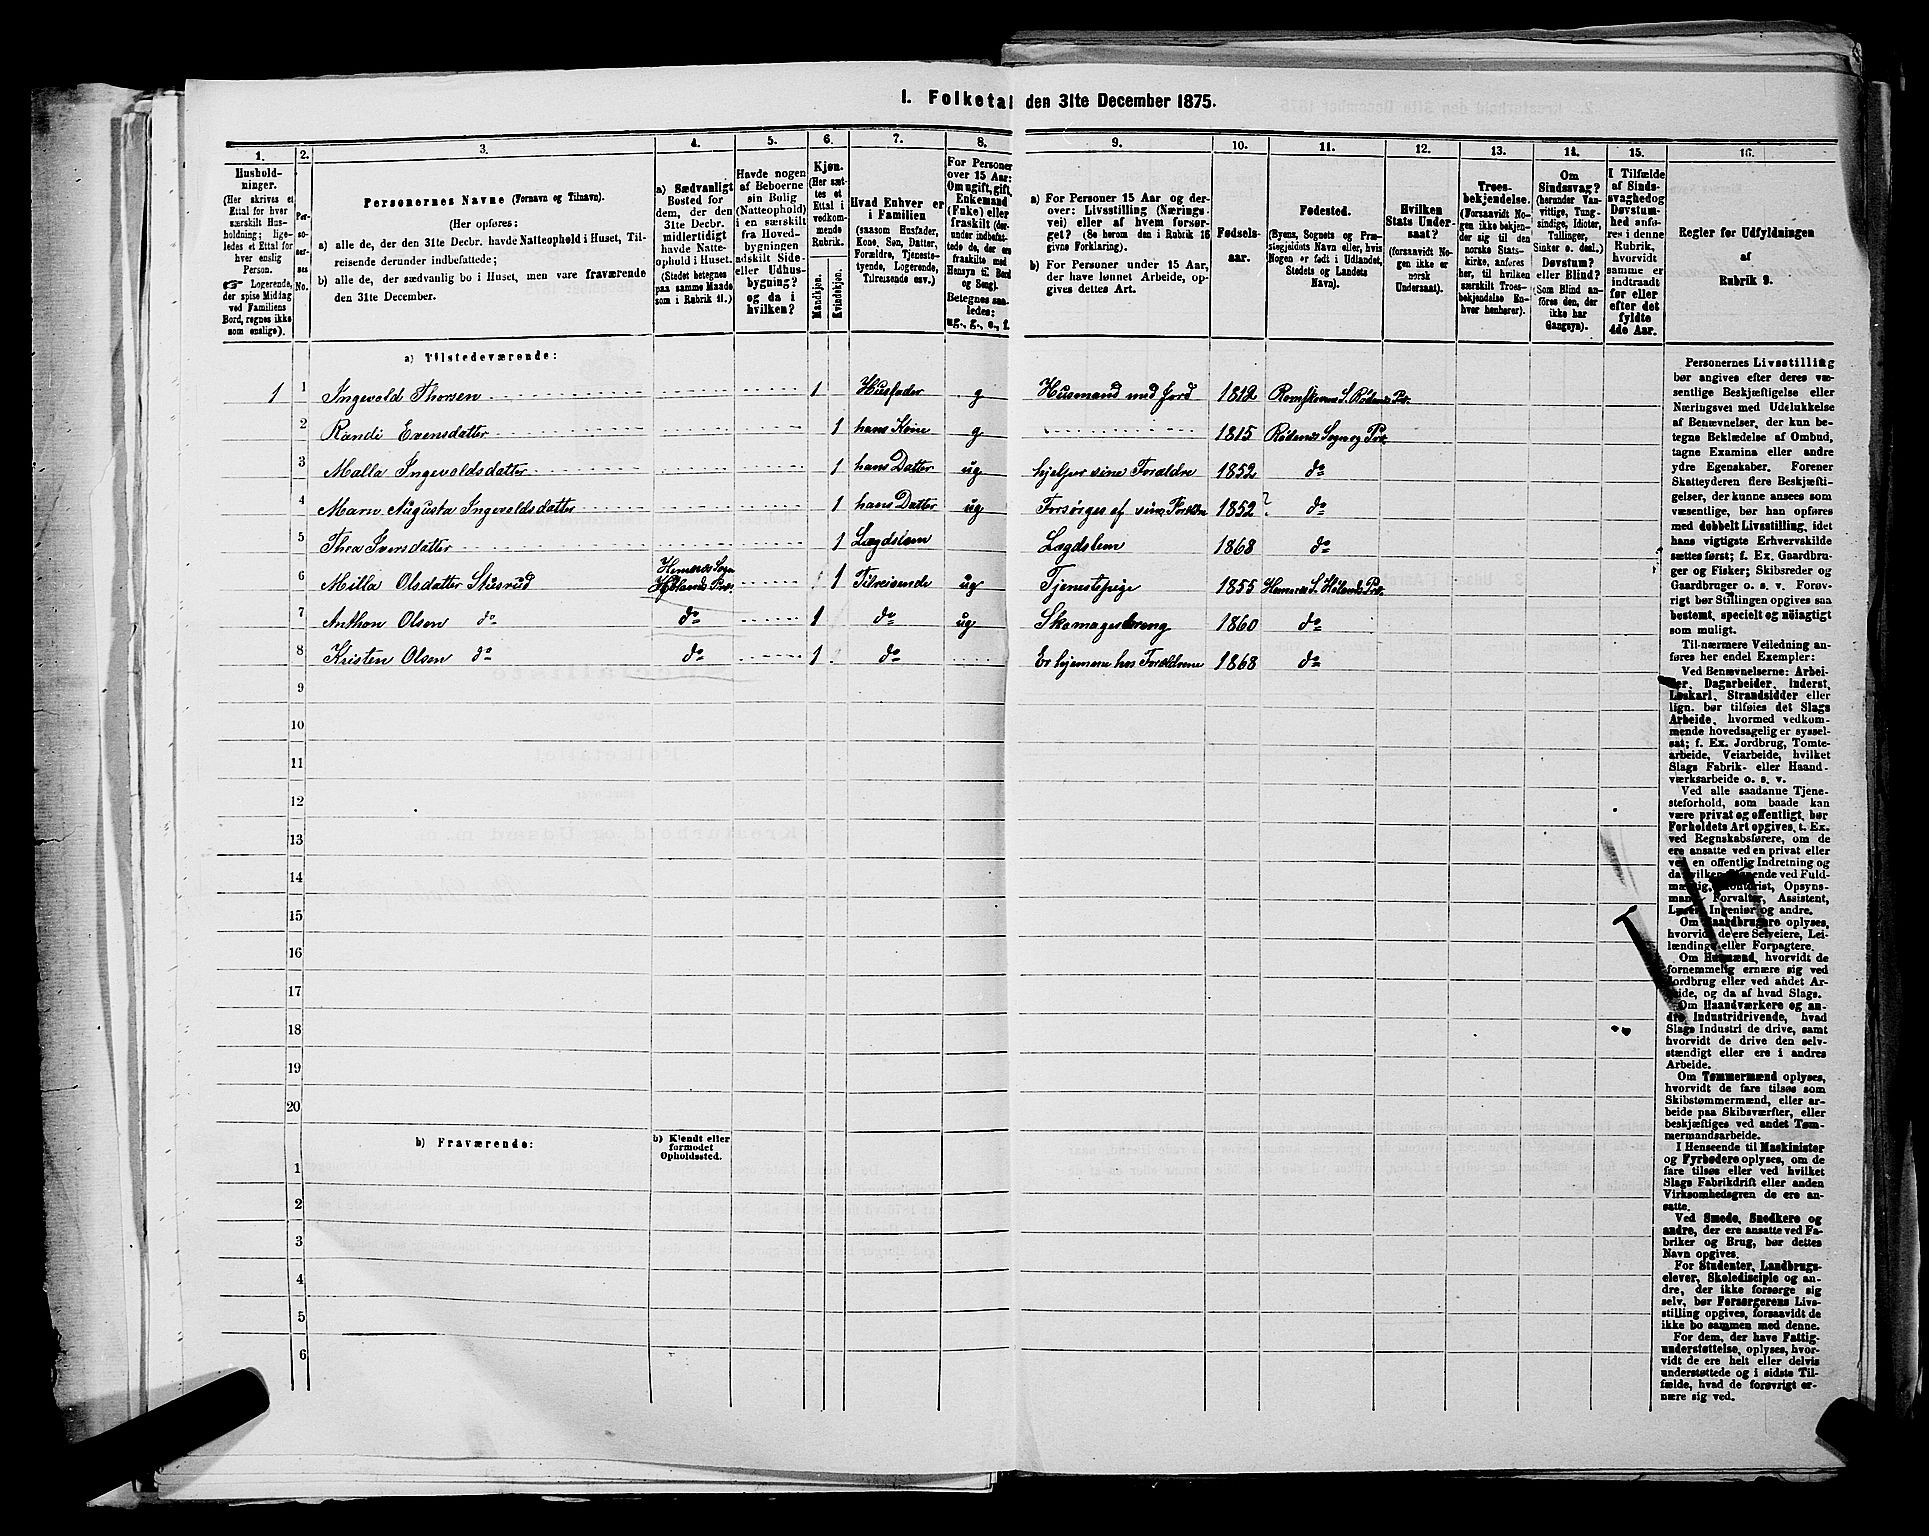 1. Folketal den 31te December 1875.
1.
Hushold-
ninger.
(Her skrives et
Ettal for hver
særskilt Hus-
holdning; lige-
ledes et Ettal for
hver enslig
Person.
Logerende,
der spise Middag
ved Familiens
Bord, regnes ikke
som enslige).
2.
Per-
so-
ner-
nes
No.
3.
Personernes Navne (Fornavn og Tilnavn).
(Her opføres:
a) alle de, der den 31te Decbr. havde Natteophold i Huset, Til-
reisende derunder indbefattede;
b) alle de, der sædvanlig bo i Huset, men vare fraværende
den 31te December.
4.
a) Sædvanligt
Bosted for
dem, der den
31te Decbr.
midlertidigt
havde Natte-
ophold i Huset.
(Stedet betegnes
paa samme Maade
som i Rubrik 11.)
5.
Havde nogen
af Beboerne
sin Bolig
(Natteophold)
i en særskilt
fra Hoved-
bygningen
adskilt Side-
eller Udhus-
bygning?
og da i
hvilken?
6.
Kjøn.
(Her sæt-
tes et
Ettal i
vedkom-
mende
Rubrik.
Mandkjøn.
Kvindekjøn.
7.
Hvad Enhver er
i Familien
(saasom Husfader,
Kone, Søn, Datter,
Forældre, Tjeneste-
tyende, Logerende,
Tilreisende osv.)
8.
For Personer
over 15 Aar:
Om ugift, gift,
Enkemand
(Enke) eller
fraskilt (der-
under indbefat-
tede de, der ere
fraskilte med
Hensyn til Bord
og Seng).
Betegnes saa-
ledes:
ug., g., e., f.
9.
a) For Personer 15 Aar og der-
over: Livsstilling (Nærings-
vei) eller af hvem forsør-
get? (Se herom den i Rubrik 16
givne Forklaring).
b) For Personer under 15 Aar,
der have lønnet Arbeide, op-
gives dettes Art.
10.
Fødsels-
aar.
11.
Fødested.
(Byens, Sognets og Præ-
stegjeldets Navn eller, hvis
Nogen er født i Udlandet,
Stedets og Landets
Navn).
12.
Hvilken
Stats Under-
saat?
(forsaavidt No-
gen ikke er
norsk
Undersaat).
13.
Troes-
bekjendelse.
(Forsaavidt No-
gen ikke bekjen-
der sig til den
norske Stats-
kirke, anføres
her, til hvilken
særskilt Troes-
bekjendelse En-
hver henhører).
14.
Om
Sindssvag?
(herunder Van-
vittige, Tung-
sindige, Idioter,
Tullinger,
Sinker o. desl.)
Døvstum?
eller Blind?
(Som Blind an-
føres den, der
ikke har
Gangsyn).
15.
I Tilfælde
af Sinds-
svaghed og
Døvstum-
hed anfø-
res i denne
Rubrik,
hvorvidt
samme er
indtraadt
før eller
efter det
fyldte
4de Aar.
16.
Regler for Udfyldningen
af
Rubrik 9.
a) Tilstedeværende:
1 1 Ingevold Thorsen 1 Husfader g Husmand med Jord 1812 Romskovens S. Rødenes Pr.
2 Randi Evensdatter 1 hans Kone g 1815 Rødenes Sogn og Pr.
3 Malla Ingevoldsdatter 1 hans Datter ug hjelper sine Forældre 1852 do
4 Marn Augusta Ingevoldsdatter 1 hans Datter ug Forsørges af sine Forældre 1852? do
5 Thea Iversdatter 1 Lægdslem Lægdslem 1868 do
6 Milla Olsdatter Hemnes Sogn Hølands Pr. 1 Tilreisende ug Tjenestepige 1855 Hemnes S. Hølands Pr.
7 Anthon Olsen do do 1 do ug Skomagerdreng 1860 do
8 Kristen Olsen do do 1 do Er hjemme hos Forældrene 1868 do
9
10
11
12
13
14
15
16
17
18
19
20
b) Fraværende:
b) Kjendt eller
formodet
Opholdssted.
1
2
3
4
5
6
Personernes Livsstilling
bør angives efter deres væ-
sentlige Beskjæftigelse eller
Næringsvei med Udelukkelse
af Benævnelser, der kun be-
tegne Beklædelse af Ombud,
tagne Examina eller andre
ydre Egenskaber. Forener
Skatteyderen flere Beskjæfti-
gelser, der kunne ansees som
væsentlige, bør han opføres
med dobbelt Livsstilling, idet
hans vigtigste Erhvervskilde
sættes først; f. Ex. Gaardbru-
ger og Fisker; Skibsreder og
Gaardbruger o. s. v. Forøv-
rigt bør Stillingen opgives saa
bestemt, specielt og nøiagtigt
som muligt.
Til nærmere Veiledning an-
føres her endel Exempler:
Ved Benævnelserne: Arbei-
der, Dagarbeider, Inderst,
Løskarl, Strandsidder eller
lign. bør tilføies det Slags
Arbeide, hvormed vedkom-
mende hovedsagelig er syssel-
sat; f. Ex. Jordbrug, Tomte-
arbeide, Veiarbeide, hvilket
Slags Fabrik- eller Haand-
værksarbeide o. s. v.
Ved alle saadanne Tjene-
steforhold, som baade kan
være privat og offentligt, bør
Forholdets Art opgives, t. Ex.
ved Regnskabsførere, om de
ere ansatte ved en privat eller
ved en offentlig Indretning og
da hvilken; lignende ved Fuld-
mægtig, Kontorist, Opsyns-
mand, Forvalter, Assistent,
Lærer, Ingeniør og andre.
Om Gaardbrugere oplyses,
hvorvidt de ere Selveiere, Lei-
lændinge eller Forpagtere.
Om Husmænd, hvorvidt de
fornemmelig ernære sig ved
Jordbrug eller ved andet Ar-
beide, og da af hvad Slags.
Om Haandværkere og an-
dre Industridrivende, hvad
Slags Industri de drive, samt
hvorvidt de drive den selv-
stændigt eller ere i andres
Arbeide.
Om Tømmermænd oplyses,
hvorvidt de fare tilsøs som
Skibstømmermænd, eller ar-
beide paa Skibsværfter, eller
beskjæftiges ved andet Tøm-
mermandsarbeide.
I Henseende til Maskinister
og Fyrbødere oplyses, om de
fare tilsøs eller ved hvilket
Slags Fabrikdrift eller anden
Virksomhedsgren de ere an-
satte.
Ved Smede, Snedkere og
andre, der ere ansatte ved Fa-
briker og Brug, bør dettes
Navn opgives.
For Studenter, Landbrugs-
elever, Skoledisciple og an-
dre, der ikke forsørge sig
selv, bør Forsørgerens Livs-
stilling opgives, forsaavidt de
ikke bo sammen med denne.
For dem, der have Fattig-
understøttelse, oplyses, hvor-
vidt de ere helt eller delvis
understøttede og i sidste Til-
fælde, hvad de forøvrigt er-
nære sig ved.